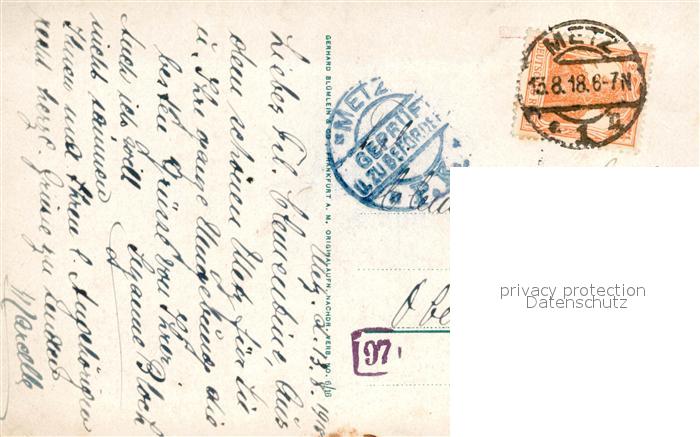 Metz, d. 13.8.1918
Liebes Frl. Clementine, Aus
dem schönen Metz für Sie
u. Ihre ganze Umgebung die
besten Grüsse von Ihrer
Suzanne Bloch
Auch ich will
nicht säumen
Ihnen und Ihren l. Angehörigen
recht herzl. Grüsse zu senden
GERHARD BLÜMLEIN & CO., FRANKFURT A. M. ORIGINALAUFN. NACHDR. VERB. NO. 6/16
METZ
GEPRÜFT
U. ZU BEFÖRDERN
P.K.
METZ
15.8.18.6-7N
* 1 g
97
Obe
privacy protection
Datenschutz